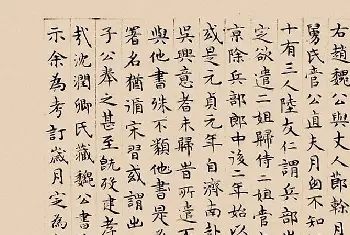 右趙魏公與丈人節幹月
舅氏管公直夫月囪不知
十有三人陸友仁謂兵部
定欲遣二姐歸侍二姐管
京除兵部郎中該二年始以
或是元貞元年自濟南赴
吳興意者未歸昔所遣
與他書殊不類他書是
署名猶循宋習或謂出
子公奉之甚至既歿建孝
哉沈潤卿氏藏魏公書
示余為考訂歲月定為